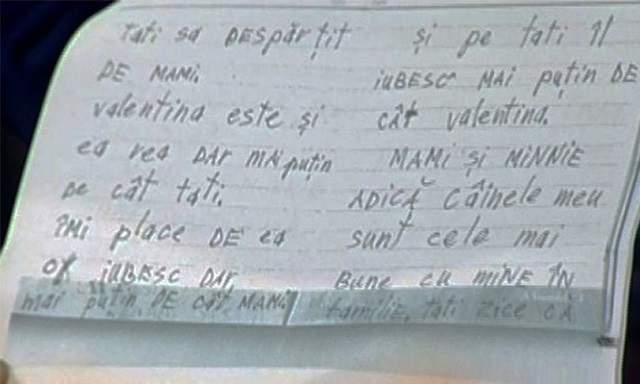 Tati sa DESPĂRȚIT
DE MAMI.
valentina este și
ea rea DAR MAI puțin
DE cât tati.
ÎMI place DE ea
iUBESC DAR
mai puțin DE cât MAMI
și pe tati îl
iUBESC MAI puțin DE
cât valentina.
MAMi și MiNNiE
ADICĂ Câinele meu
sunt cele mai
BUNE cu MiNE ÎN
familie, tati zice că